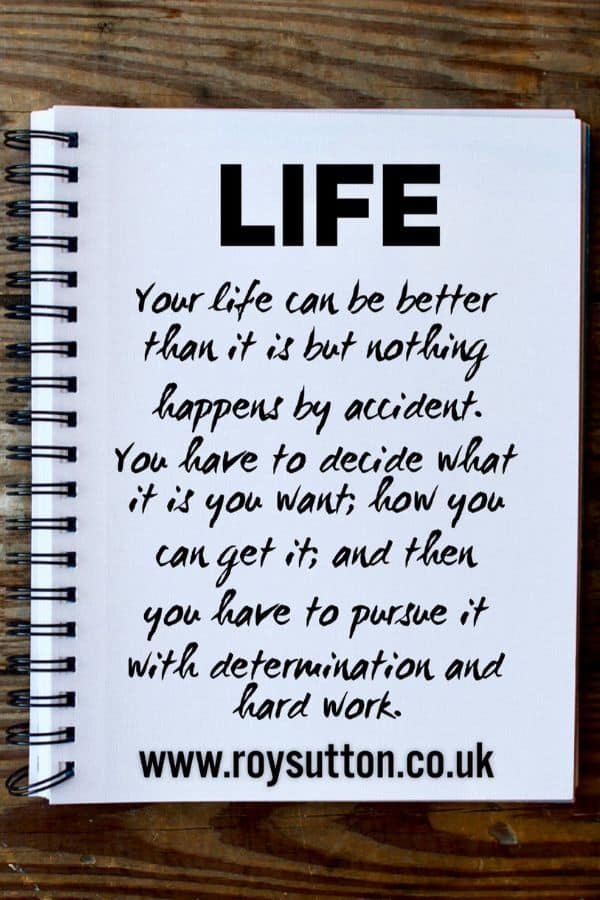 LIFE
Your life can be better
than it is but nothing
happens by accident.
You have to decide what
it is you want; how you
can get it; and then
you have to pursue it
with determination and
hard work.
www.roysutton.co.uk